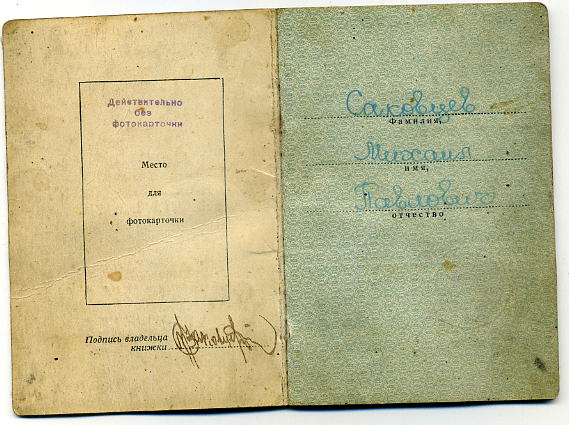 Действительно
без
фотокарточки
Место
для
фотокарточки
Подпись владельца
книжки
Саковцев
Фамилия,
Михаил
имя,
Павлович
отчество